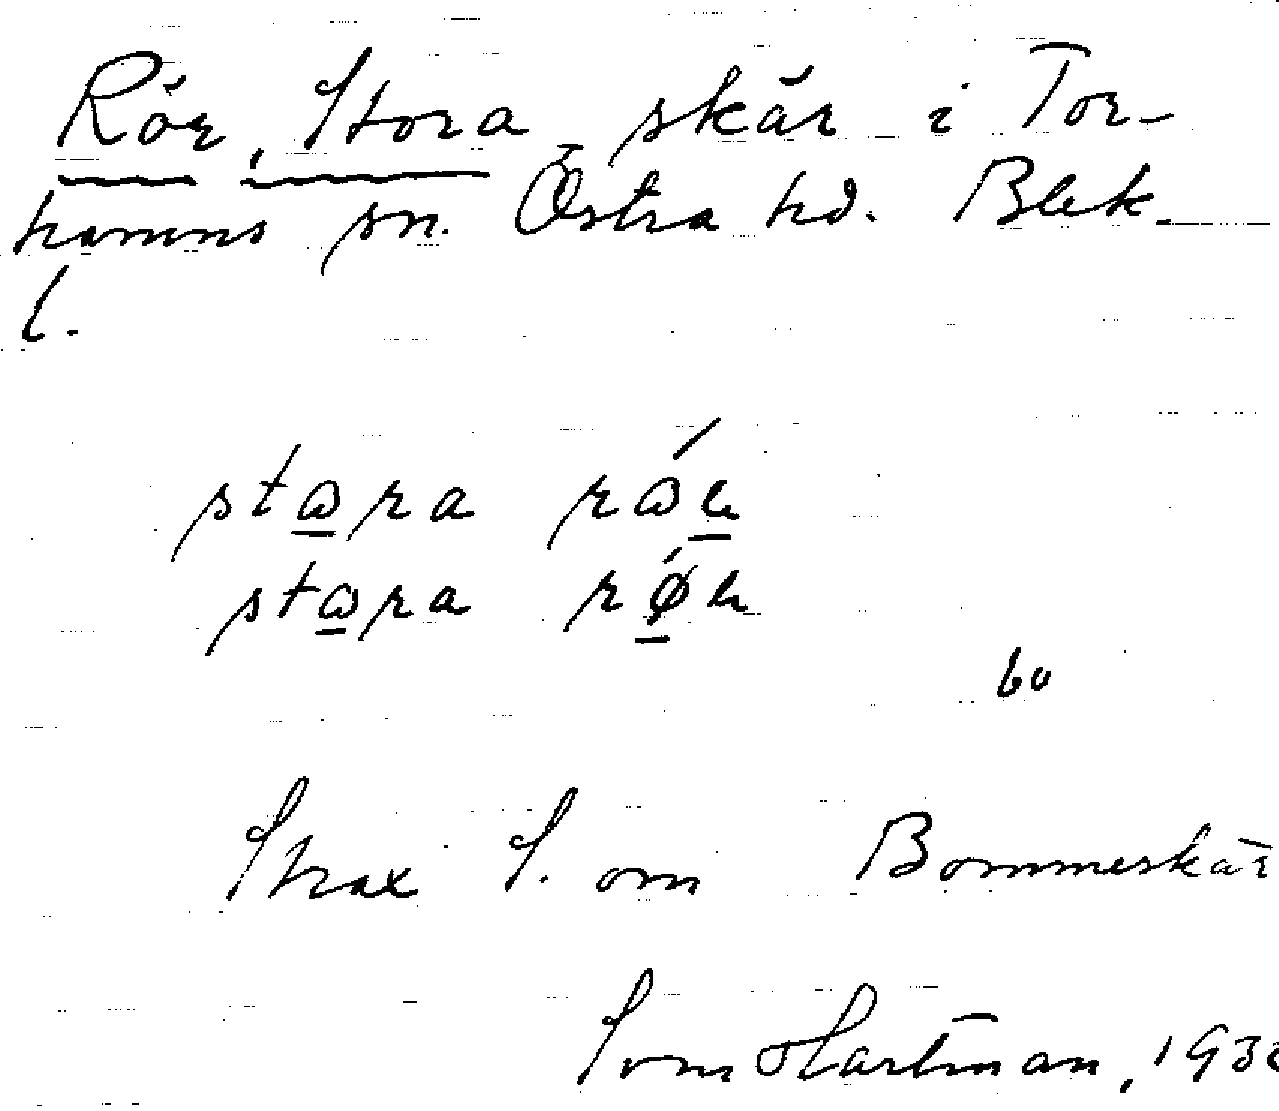 Rör, Stora skär i Tor-
hamns sn. Östra hd. Blek.
l.
stωra rώʀ
stωra rǿʀ
bo
Strax S. om Bommeskär
Sven Hartman, 193